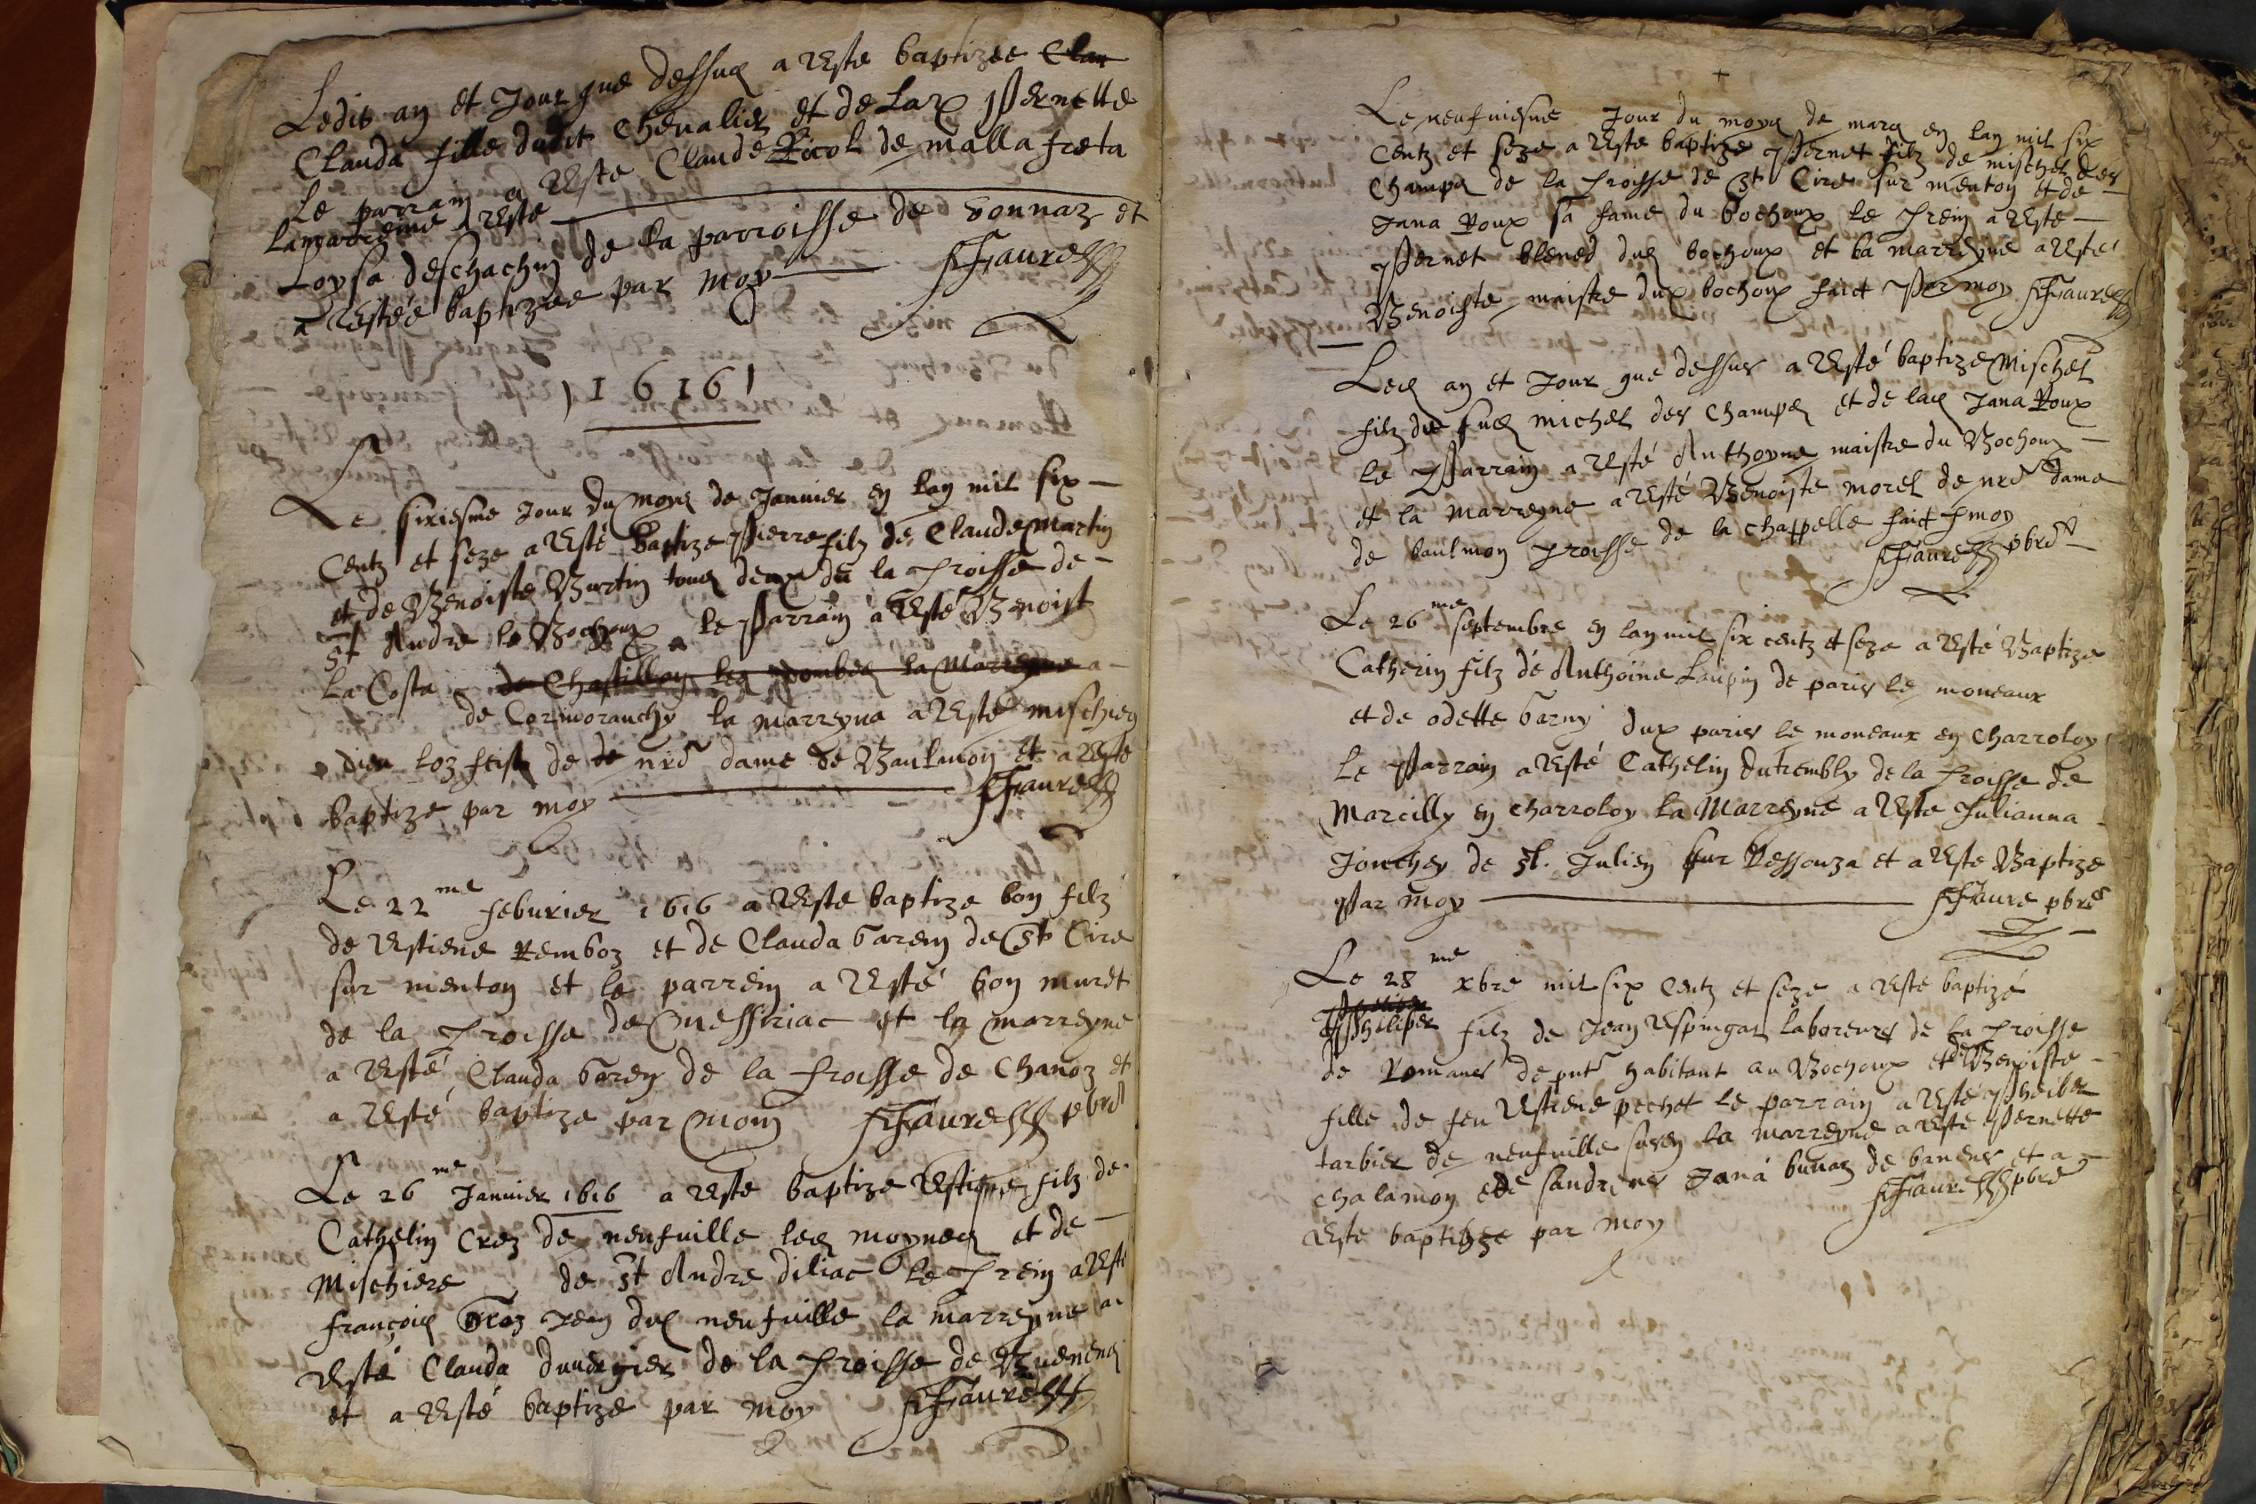 Ledit an et Jour que dessus a Este baptizee Clau
Clauda fille dudit Chevalier et de Lad Pernette
Le parrain a Este Claude Picol de mallafreta
La marreme a Este
Loysa deschachin de la parroisse de vonnaz et
a Estéé baptizée par moy FFaure
1616
Le sixiesme Jour du moys de Janvier en lan mil six
Centz et seze a Esté baptize Pierre filz de Claude Martin
et de Benoiste Burtin tous deux de la proisse de
St Andre le Bochoux le Parrain a Esté Benoist
La Costa de Chastillon les Dombes la Marreyne a
de Cormoranchy la marreyna a Esté mischiere
de de nre dame de Baulmon et a Este
baptize par moy FFaure
Le 22me febvrier 1616 a Este baptize bon filz
de Estiene Remboz et de Clauda barein de St Cire
sur menton et le parrein a Esté bon muret
de la proisse de Messiriac et la marreyne
a Esté Clauda barein de la proisse de Chanoz et
a Esté baptize par moin FFaure pbre
Le 26me Janvier 1616 a Este baptize Estiene filz de
Cathelin Croz de neufville les moynes et de
Mischiere de St Andre diliac le prein a Esté
françois Croz Jean dud neufville la marreyne a
Esté Clauda duvergier de la proisse de Buenens
et a Esté baptize par moy FFaure
Le neufviesme Jour du moys de mars en lan mil six
Centz et seze a Este baptize Pernet filz de mischel des
Champs de la proisse de St Cire sur menton et de
Jana Roux sa fame du bochoux le prein a Este
Pernet blened dud bochoux et la marreyne a Esté
Benoiste maistre dud bochoux faict Par moy FFaure
Led an et Jour que dessus a Esté baptize Mischel
filz du sud michel des Champs et de lad Jana Roux
le Parrain a Esté Anthoyne maistre du Bochoux
et la marreyne a Esté Benoiste morel de nre dame
de baulmon proisse de la chappelle faict p moy
FFaure pbre
Le 26me septembre en lan mil six centz et seze a Esté Baptize
Catherin filz de Anthoine Laupin de paris le moneaux
et de odette barny dud paris le moneaux en Charroloy
Le Parrain a Esté Cathelin dutrembly de la proisse de
Marcilly en Charroloy La Marreyne a Este Julianna
Jonchey de St. Julien sur Ressouza et a Este Baptize
Par moy FFaure pbre
Le 28me xbre mil six Centz et seze a Este baptizé
Philiper filz de Jean Espingat laboreurs de la proisse
de Romans de pnt habitant au Bochoux et de Benoiste
fille de feu Estiene pechet le parrain a Esté Pheiber
tarbier de neufville la marreyne a Esté Pernette
chalamon et de sandrens Jana bunaz de banens et a
Este baptihze par moy FFaure pbre